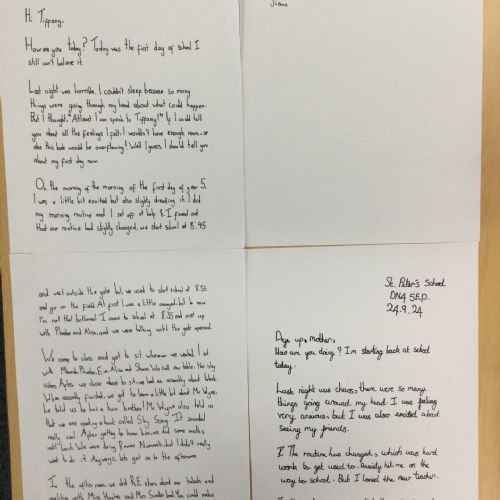 Hi Tiffany,
How are you today? Today was the first day of school I
still can't believe it.
Last night was horrible. I couldn't sleep because so many
things were going through my head about what could happen.
But I thought "Atleast I can speak to Tiffany!" If I could tell
you about all the feelings I felt, I wouldn't have enough room, or
else this book would be overflowing! Well I guess I should tell you
about my first day now.
On the morning of the morning of the first day of year 5,
I was a little bit excited but also slightly dreading it. I did
my morning routine and I set off at half 8. I found out
that our routine had slightly changed, we start school at 8:45
Sienna
and wait outside the gate but, we used to start school at 8:55
and go on the field. At first I was a little annoyed, but to now
I'm not that bothered. I came to school at 8:35 and met up
with Phoebe and Alison, and we were talking until the gate opened.
We came to class and got to sit wherever we wanted. I sat
with Miranda, Phoebe, Erin, Alice and Shaun. We call our table, the sky
sisters. After we chose where to sit, we had an assembly about
When assembly finished, we got to learn a little bit about Mr Wyne,
he told us he has a twin brother! Mr Wyne also told us
that we are reading a book called Sky Song. It sounded
really cool. After getting to know him, we did some maths,
until lunch. We were doing Roman Numerals, but I didn't really
want to do it. Anyways, lets get on to the afternoon.
In the afternoon, we did RE stars about our talents and
ambitions with Miss and Mrs You could make
St. Peter's School
DN4 5EP
24.9.24
Daye up, Mother,
How are you doing? I'm starting back at school
today.
Last night was chaos, there were so many
things going around my head. I was feeling
very anxious, but I was also excited about
seeing my friends.
The routine has changed, which was hard
work to get used to. Anxiety hit me on the
way to school. But I loved the new teacher.